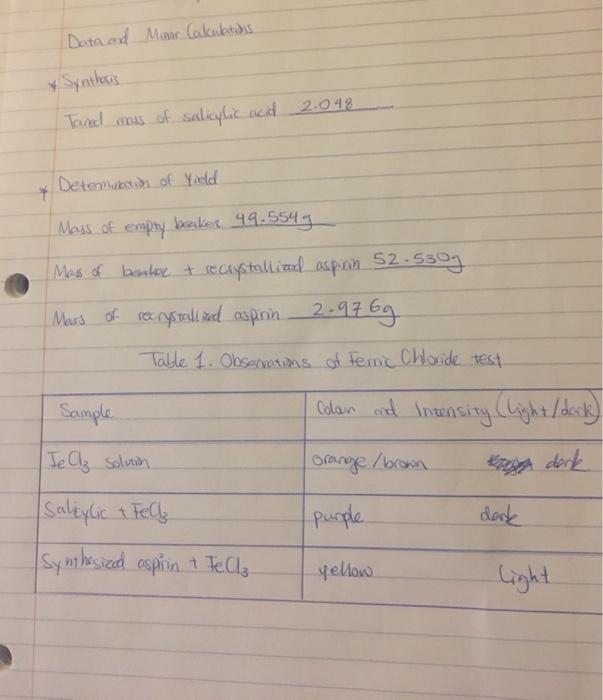 Data and Minor Calculations
* Synthesis
Tared mass of salicylic acid 2.048
* Determination of Yield
Mass of empty beaker 49.554g
Mass of beaker + recrystallized aspirin 52.530g
Mass of recrystallized aspirin 2.976g
Table 1. Observations of Ferric Chloride test
Sample Colour and Intensity (light/dark)
FeCl3 solution orange/brown dark
Salicylic + FeCl3 purple dark
Synthesized aspirin + FeCl3 yellow light